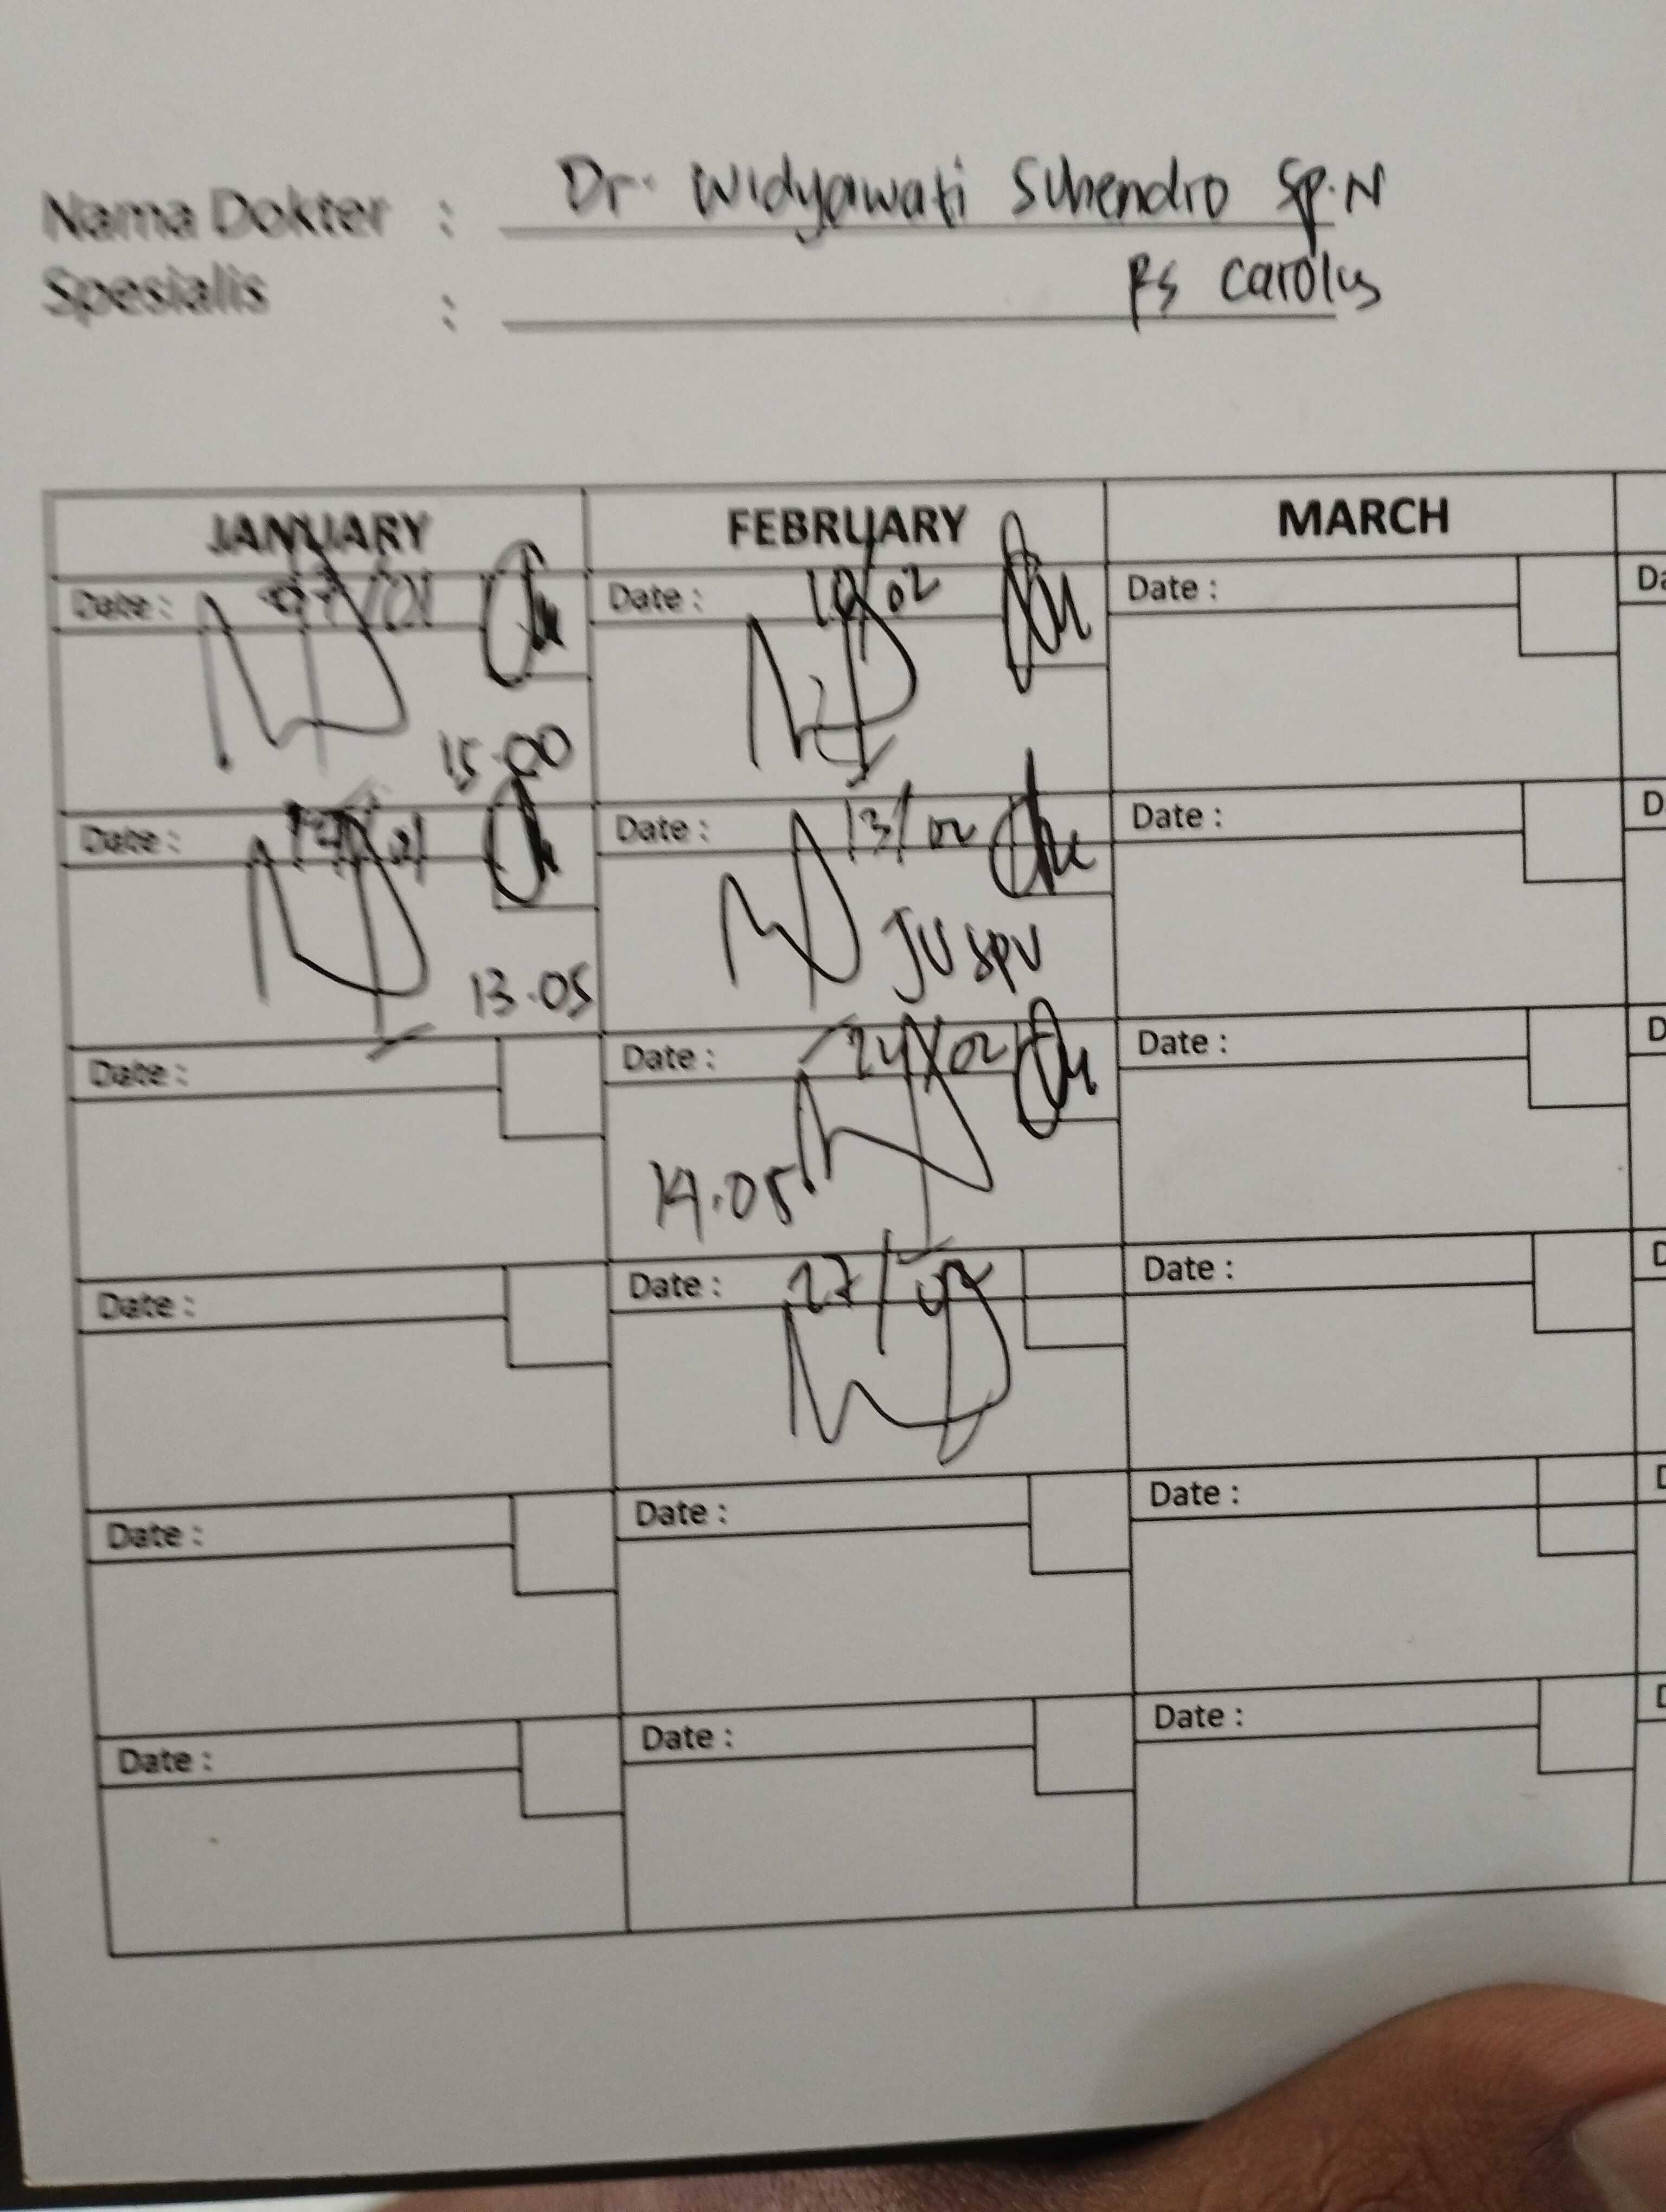 Nama Dokter : Dr. Widyawati Suhendro Sp.N
Spesialis : RS Carolus
JANUARY FEBRUARY MARCH
Date : /01 Date : 10/02 Date : Da
15.00
Date : /01 Date : 13/02 Date : D
13.05 JV SPV
Date : Date : 24/02 Date : D
14.05
Date : Date : 27/02 Date : D
Date : Date : Date : D
Date : Date : Date : D